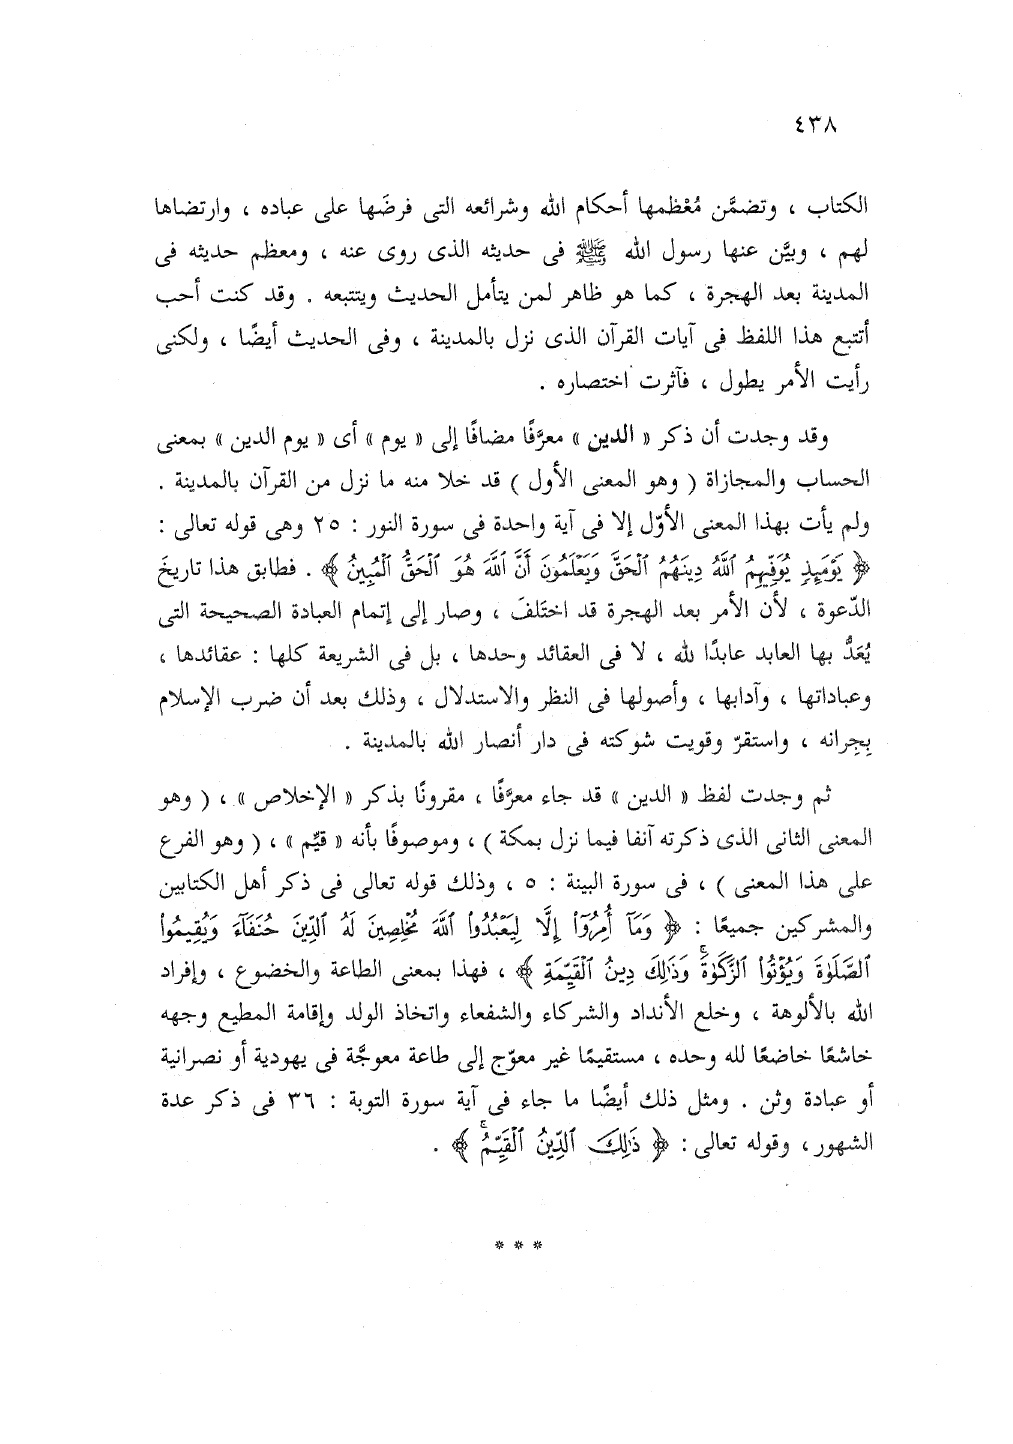 ٤٣٨
الكتاب ، وتضمَّن مُعْظمها أحكام الله وشرائعه التى فرضَها على عباده ، وارتضاها
لهم ، وبيَّن عنها رسول الله ﷺ فى حديثه الذى روى عنه ، ومعظم حديثه فى
المدينة بعد الهجرة ، كما هو ظاهر لمن يتأمل الحديث ويتتبعه . وقد كنت أحب
أتتبع هذا اللفظ فى آيات القرآن الذى نزل بالمدينة ، وفى الحديث أيضًا ، ولكنى
رأيت الأمر يطول ، فآثرت اختصاره .
وقد وجدت أن ذكر « الدين » معرَّفًا مضافًا إلى « يوم » أى « يوم الدين » بمعنى
الحساب والمجازاة ( وهو المعنى الأول ) قد خلا منه ما نزل من القرآن بالمدينة .
ولم يأت بهذا المعنى الأوّل إلا فى آية واحدة فى سورة النور : ٢٥ وهى قوله تعالى :
﴿ يَوْمَئِذٍ يُوَفِّيهِمُ ٱللَّهُ دِينَهُمُ ٱلْحَقَّ وَيَعْلَمُونَ أَنَّ ٱللَّهَ هُوَ ٱلْحَقُّ ٱلْمُبِينُ ﴾ . فطابق هذا تاريخَ
الدّعوة ، لأن الأمر بعد الهجرة قد اختَلفَ ، وصار إلى إتمام العبادة الصحيحة التى
يُعَدُّ بها العابد عابدًا لله ، لا فى العقائد وحدها ، بل فى الشريعة كلها : عقائدها ،
وعباداتها ، وآدابها ، وأصولها فى النظر والاستدلال ، وذلك بعد أن ضرب الإسلام
بِجِرانه ، واستقرّ وقويت شوكته فى دار أنصار الله بالمدينة .
ثم وجدت لفظ « الدين » قد جاء معرَّفًا ، مقرونًا بذكر « الإخلاص » ، ( وهو
المعنى الثانى الذى ذكرته آنفا فيما نزل بمكة ) ، وموصوفًا بأنه « قيّم » ، ( وهو الفرع
على هذا المعنى ) ، فى سورة البينة : ٥ ، وذلك قوله تعالى فى ذكر أهل الكتابين
والمشركين جميعًا : ﴿ وَمَآ أُمِرُوٓاْ إِلَّا لِيَعْبُدُواْ ٱللَّهَ مُخْلِصِينَ لَهُ ٱلدِّينَ حُنَفَآءَ وَيُقِيمُواْ
ٱلصَّلَوٰةَ وَيُؤْتُواْ ٱلزَّكَوٰةَ ۚ وَذَٰلِكَ دِينُ ٱلْقَيِّمَةِ ﴾ ، فهذا بمعنى الطاعة والخضوع ، وإفراد
الله بالألوهة ، وخلع الأنداد والشركاء والشفعاء واتخاذ الولد وإقامة المطيع وجهه
خاشعًا خاضعًا لله وحده ، مستقيمًا غير معوّج إلى طاعة معوجَّة فى يهودية أو نصرانية
أو عبادة وثن . ومثل ذلك أيضًا ما جاء فى آية سورة التوبة : ٣٦ فى ذكر عدة
الشهور ، وقوله تعالى : ﴿ ذَٰلِكَ ٱلدِّينُ ٱلْقَيِّمُ ۚ ﴾ .
* * *